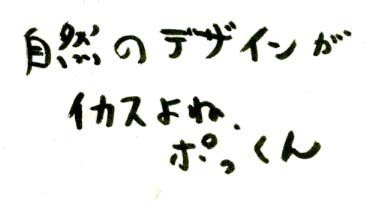 自然のデザインが
イカスよね.
ポっくん